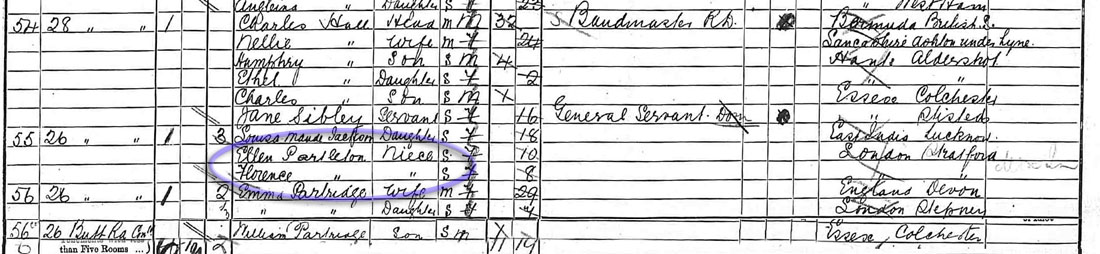 Daughter S
54 28 " " 1 Charles Hall Head M M 32 Bandmaster R.A. Bermuda British S.
Nellie " Wife M F 24 Lancashire Ashton under Lyne.
Humphry " Son S M 4 Hants Aldershot
Ethel " Daughter S F 2 " "
Charles " Son S M Essex Colchester
Jane Sibley Servant S F 16 General Servant Dom " Stisted
55 26 " " 1 3 Louisa Maude Jackson Daughter S F 18 East India Lucknow.
Ellen Partleton Niece S F 10 London Stratford
Florence " " S F 8 " "
56 26 " " 1 2 Emma Partridge Wife M F 29 England Devon
" " Daughter S F 4 London Stepney
56 26 Butt Rd William Partridge Son S M Essex Colchester
than Five Rooms ...)